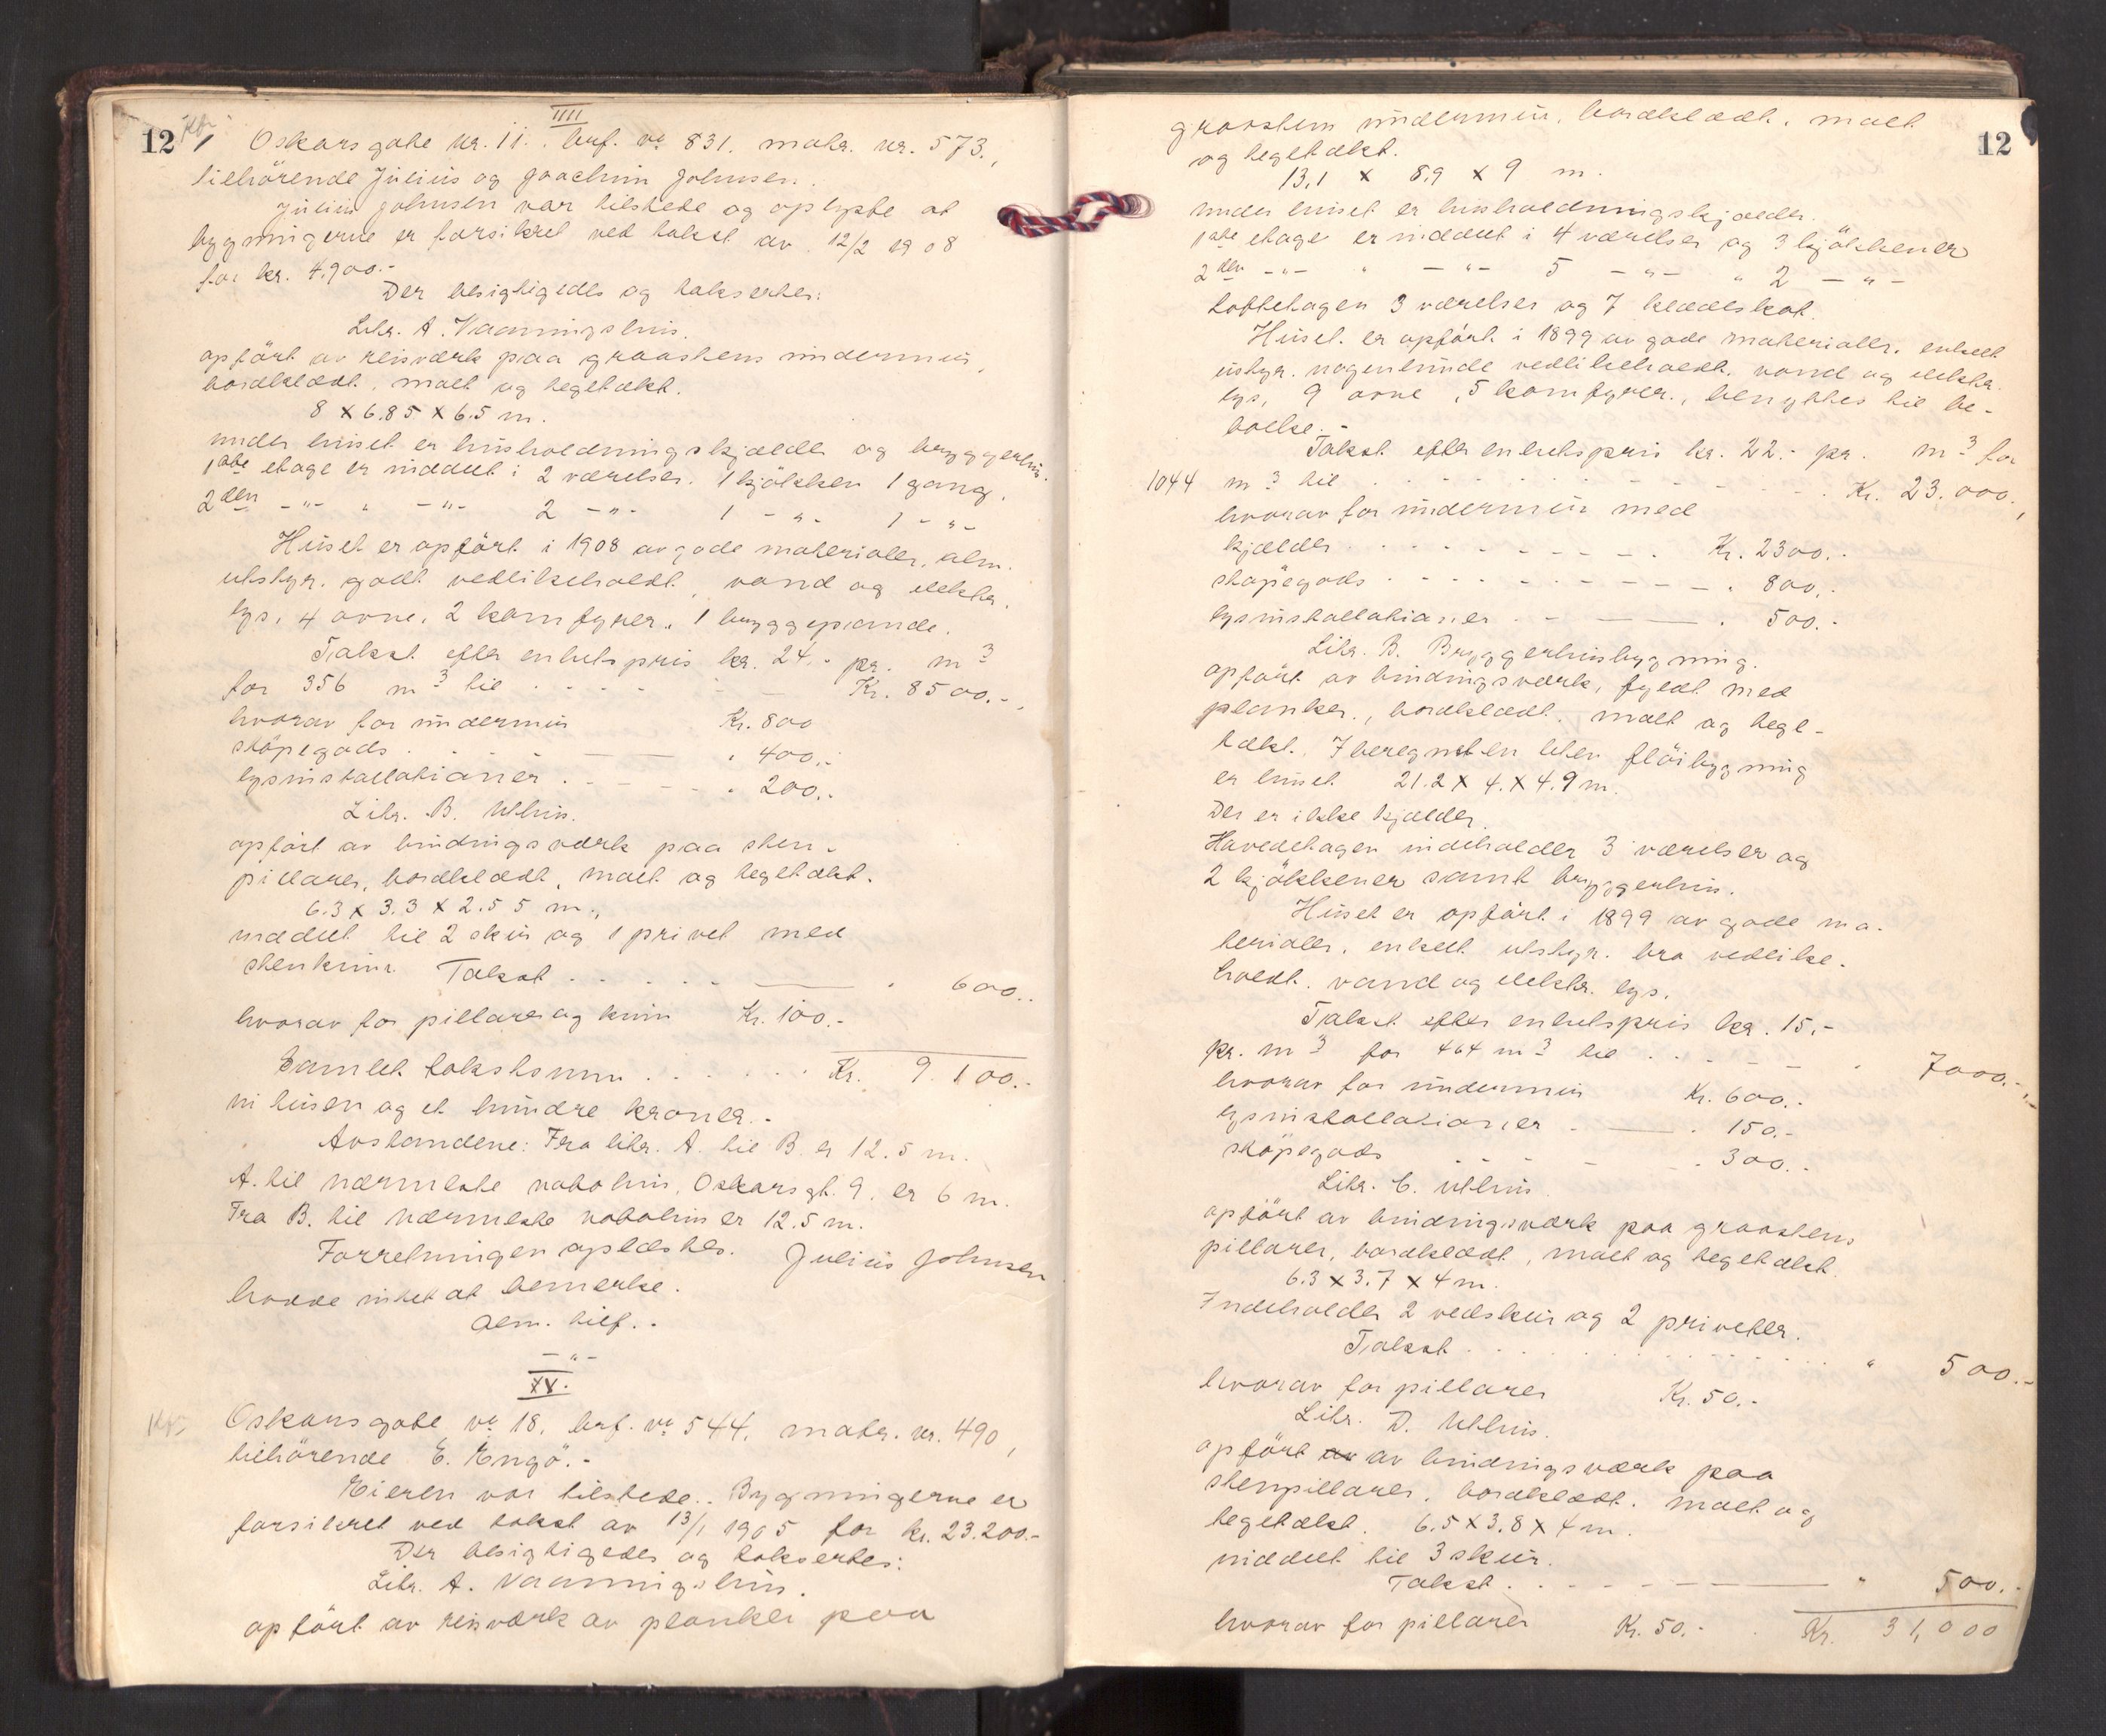 12
IIII
Oskarsgate nr. 11. brf. nr 831. matr. nr. 573.,
tilhörende Julius og Joachim Johnsen.
Julius Johnsen var tilstede og oplyste at
bygningerne er forsikret ved takst av 12/2 1908
for kr. 4.900.-
Der besigtigedes og taksertes:
Litr. A. Vaaningshus.
opfört av reisværk paa graastens undermur,
bordklædt, malt og tegltækt.
8 x 6.85 x 6.5 m.
under huset er husholdningskjælder og bryggerhus.
1ste etage er inddelt i 2 værelser. 1 kjökken 1 gang.
2den -"- " -"- 2 -"- 1 -"- 1 -"-
Huset er opfört i 1908 av gode materialer, alm.
utstyr. godt vedlikeholdt, vand og elektr.
lys, 4 ovne, 2 komfyrer, 1 bryggepande.
Takst efter enhetspris kr. 24.- pr. m3
for 356 m3 til Kr. 8500.-,
hvorav for undermur Kr. 800
stöpegods . " 400.-
lysinstallationer . " 200.-
Litr. B. Uthus.
opfört av bindingsverk paa sten-
pillarer, bordklædt, malt og teglækt.
6.3 x 3.3 x 2.55 m.,
inddelt til 2 skur og 1 privet med
stenkum. Takst . . . " 600.-
hvorav for pillarer og kum Kr. 100.-
Samlet takstsum . . . Kr. 9.100.-
ni tusen og et hundre kroner.-
Avstandene: Fra litr. A. til B. er 12.5 m.
A. til nærmeste nabohus, Oskarsgt. 9. er 6 m.
Fra B. til nærmeste nabohus er 12.5 m.
Forretningen oplæstes. Julius Johnsen
hadde intet at bemerke.
Alm. tilf..
-"-
XV.
Oskarsgate nr 18. brf. nr 544. matr. nr. 490,
tilhörende E. Engö.-
Eieren var tilstede.. Bygningerne er
forsikret ved takst av 13/1 1905 for kr. 23.200.-
Der besigtigedes og taksertes:
Litr. A. Vaaningshus.
opfört av reisværk av planker paa
12
graastens undermur, bordklædt, malt
og teglækt.
13,1 x 8,9 x 9 m.
under huset er husholdningskjælder.
1ste etage er inddelt i 4 værelser og 3 kjökkener
2den -"- " -"- 5 -"- " 2 -"-
loftetagen 3 værelser og 7 klædeskot.
Huset er opfört i 1899 av gode materialer, enkelt
utstyr. nogenlunde vedlikeholdt, vand og elektr.
lys, 9 ovne, 5 komfyrer, benyttes til be-
boelse.-
Takst efter enhetspris kr. 22.- pr. m3 for
1044 m3 til . . . Kr. 23.000.,
hvorav for undermur med
kjælder . . . Kr. 2300.-
stöpegods . . . " 800.-
lysinstallationer . . " 500.-
Litr. B. Bryggerhusbygning.
opfört av bindingsværk, fyldt med
planker, bordklædt, malt og tegl-
tækt. Iberegnet en liten flöibygning
er huset 21.2 x 4. x 4.9 m.
Der er ikke kjælder.
Hovedetagen indeholder 3 værelser og
2 kjökkener samt bryggerhus.
Huset er opfört i 1899 av gode ma-
terialer, enkelt utstyr. bra vedlike-
holdt, vand og elektr. lys.
Takst efter enhetspris kr. 15.-
pr. m3 for 464 m3 til . . . " 7000.-
hvorav for undermur Kr. 600.-
lysinstallationer . " 150.-
stöpegods . . . " 300.-
Litr. C. Uthus.
opfört av bindingsværk paa graastens
pillarer, bordklædt, malt og teglækt.
6.3 x 3.7 x 4 m.
Indeholder 2 vedskur og 2 priveter.
Takst . . . " 500.-
hvorav for pillarer Kr. 50.-
Litr. D. Uthus.
opfört av av bindingsværk paa
stenpillarer, bordklædt, malt og
teglækt. 6.5 x 3.8 x 4 m.
inddelt til 3 skur.
Takst . . . " 500.-
hvorav for pillarer Kr. 50.- . Kr. 31,000